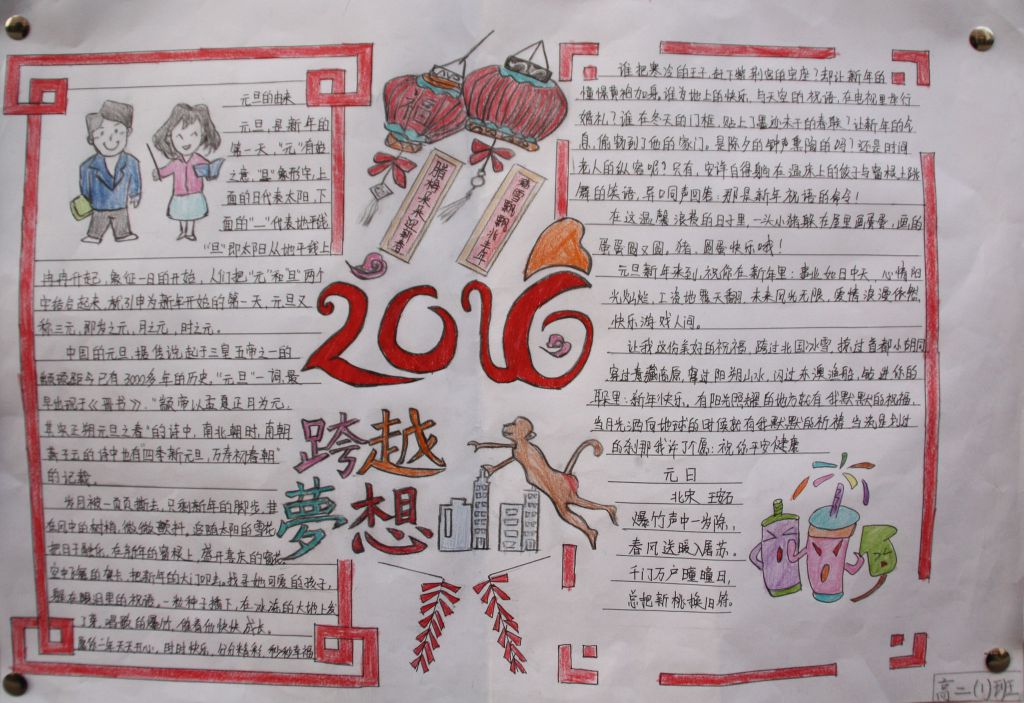 元旦的由来
元旦，是新年的
第一天，“元”有始
之意，“旦”象形字，上
面的日代表太阳，下
面的“一”代表地平线
“旦”即太阳从地平线上
冉冉升起，象征一日的开始，人们把“元”和“旦”两个
字结合起来，就引申为新年开始的第一天，元旦又
称三元，即岁之元，月之元，时之元。
中国的元旦，据传说，起于三皇五帝之一的
距今已有3000多年的历史，“元旦”一词，最
早出现于《晋书》：“颛帝以孟夏正月为元，
其实正朔元旦之春”的诗中，南北朝时，南朝
萧子云的诗中也有“四季新元旦，万寿初春朝”
的记载。
岁月被一页页撕去，只剩新年的脚步，
在风中的树梢，微微颤抖，追随太阳的雪花
把日子融化，在新年的窗棂上，盛开喜庆的窗花
空中了 的贺卡，把新年的大门叩击，找寻她可爱的孩子，
躲在眼泪里的祝福，一教种子播下，在冰冻的大地上
了 ，唱歌的爆竹，催着他快快成长。
愿你：年天天开心，时时快乐，分分精彩，秒秒幸福
福
腊梅来来迎新春
瑞雪飘飘兆丰年
2016
跨越
夢想
谁把寒冷的王子，赶下 别宫的宝座？却让新年的
憧憬费 加冕，谁为地上的快乐，与天空的祝语，在电视里举行
婚礼？谁在冬天的门框，贴上了墨迹未干的春联？让新年的
息，偷偷到了他的家门。是除夕的钟声熏陶的吗？还是时间
老人的纵容呢？只有，安详自得躺在温床上的饺子与窗棂上跳
舞的笑语，异口同声回答，那是新年祝语的命令！
在这温馨浪漫的日子里，一头小猪躲在屋里画蛋蛋，画的
蛋蛋圆又圆，猪，圆蛋快乐哦！
元旦新年来到，祝你在新年里：事业如日中天，心情阳
光灿烂，工资地覆天翻，未来风光无限，爱情浪漫依然，
快乐游戏人间。
让我这份美好的祝福，跨过北国冰雪，掠过首都小胡同
穿过青藏高原，穿过阳朔山水，闪过东澳渔船，钻进你的
耳朵里：新年快乐。有阳光照耀的地方就有我默默的祝福，
当月光洒向地球的时候就有我默默的祈祷，当流星划过
的刹那我许了个愿：祝你平安健康
元日
北宋 王安石
爆竹声中一岁除，
春风送暖入屠苏。
千门万户曈曈日，
总把新桃换旧符。
高二(1)班